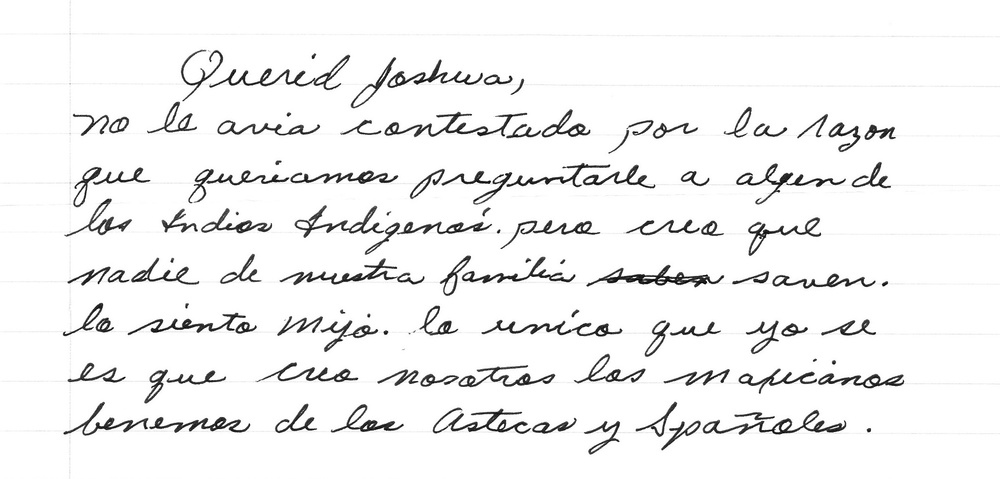 Querid Joshua,
no le avia contestado por la razon
que queriamos preguntarle a algen de
los Indios Indigenos. pero creo que
nadie de nuestra familia saben saven.
lo siento Mijo. lo unico que yo se
es que creo nosotros los mapicanos
benemos de los Astecas y Spañoles.